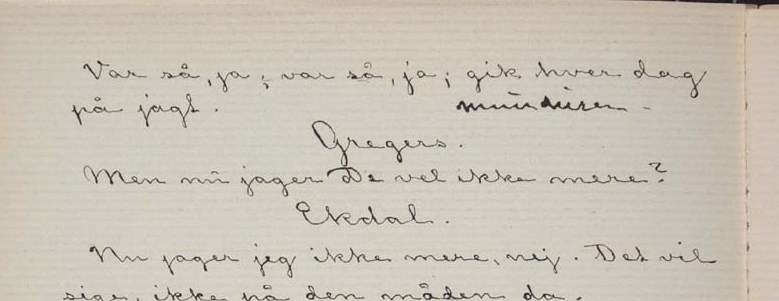 Var så, ja; var så, ja; gik hver dag
på jagt.
mundüren -
Gregers.
Men nu jager De vel ikke mere?
Ekdal.
Nu jager jeg ikke mere, nej. Det vil
sige, ikke på den måden da.